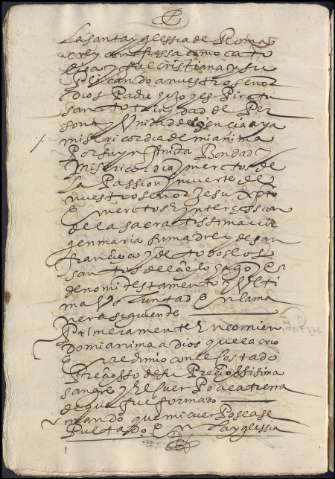 La santa yglessia de Rroma
creo y confiessa como cato
lica y fiel cristiana y su
plicando a nuestro señor
dios Padre hijo y espiritu
santo trinidad de per
sonas y unidad de esencia aya
misericordia de mi anima
Por su ynfinida Bondad
misericordia y meritos de
la Passion y muerte de
nuestro señor Jesu Xpto
e meritos e yntercession
de la sacratissima vir
gen maria su madre y de san
francisco y de todos los
santos del cielo hago y
ordeno mi testamento y ulti
ma voluntad en la ma
nera siguiente
Primeramente Encomien
do mi anima a dios que la crio
e rredimio con el costado
Precioso de su Preciossima
sangre y el cuerPo a la tierra
de que fue formado
mando que mi cuerPo sea se
Pultado en la yglessia